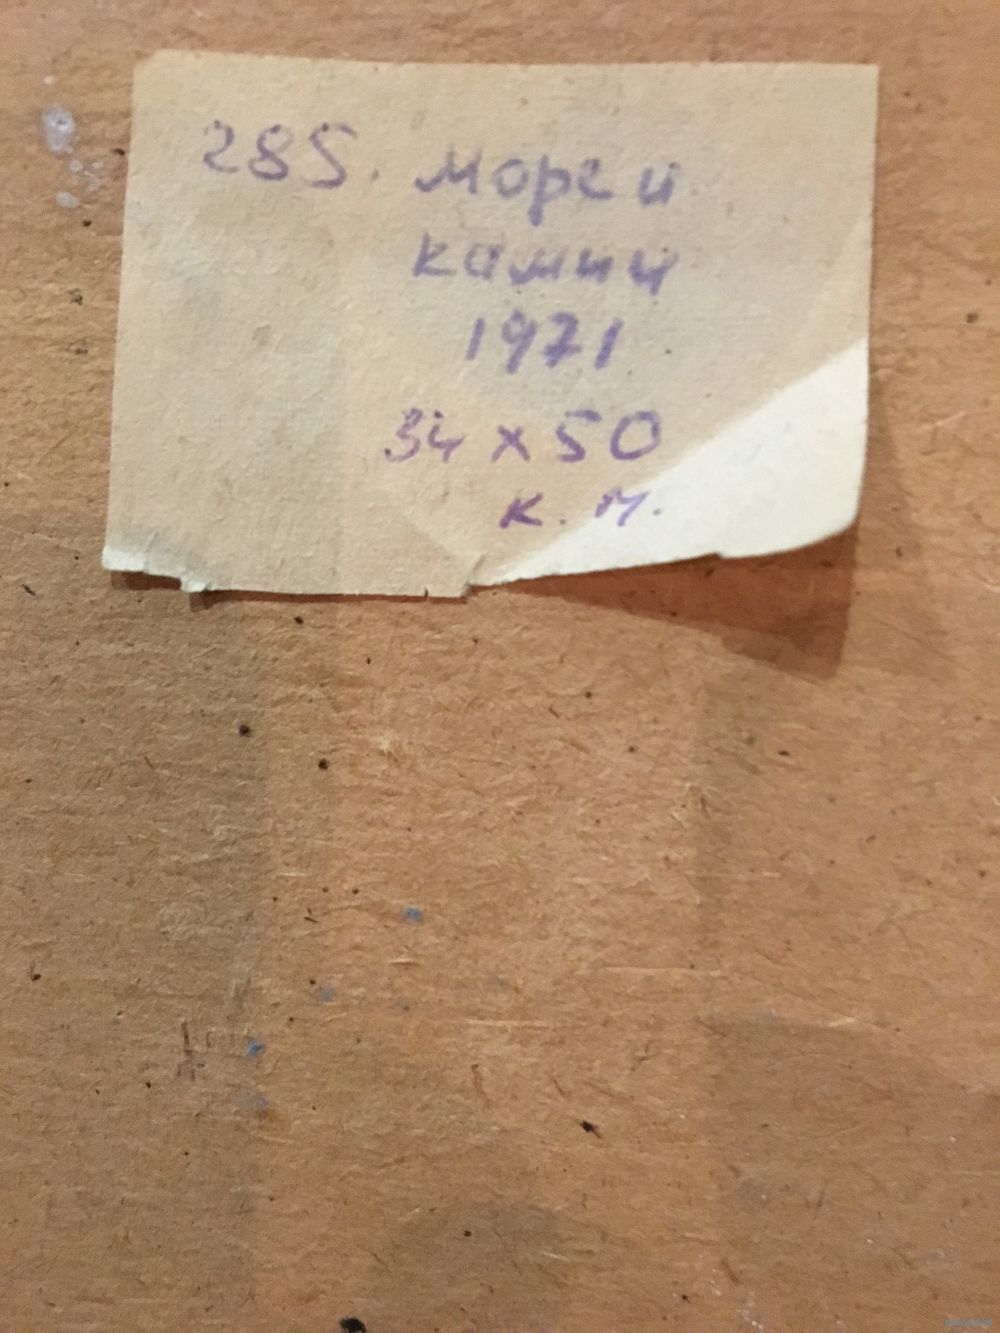 285. море и
камни
1971
34 x 50
к. м.